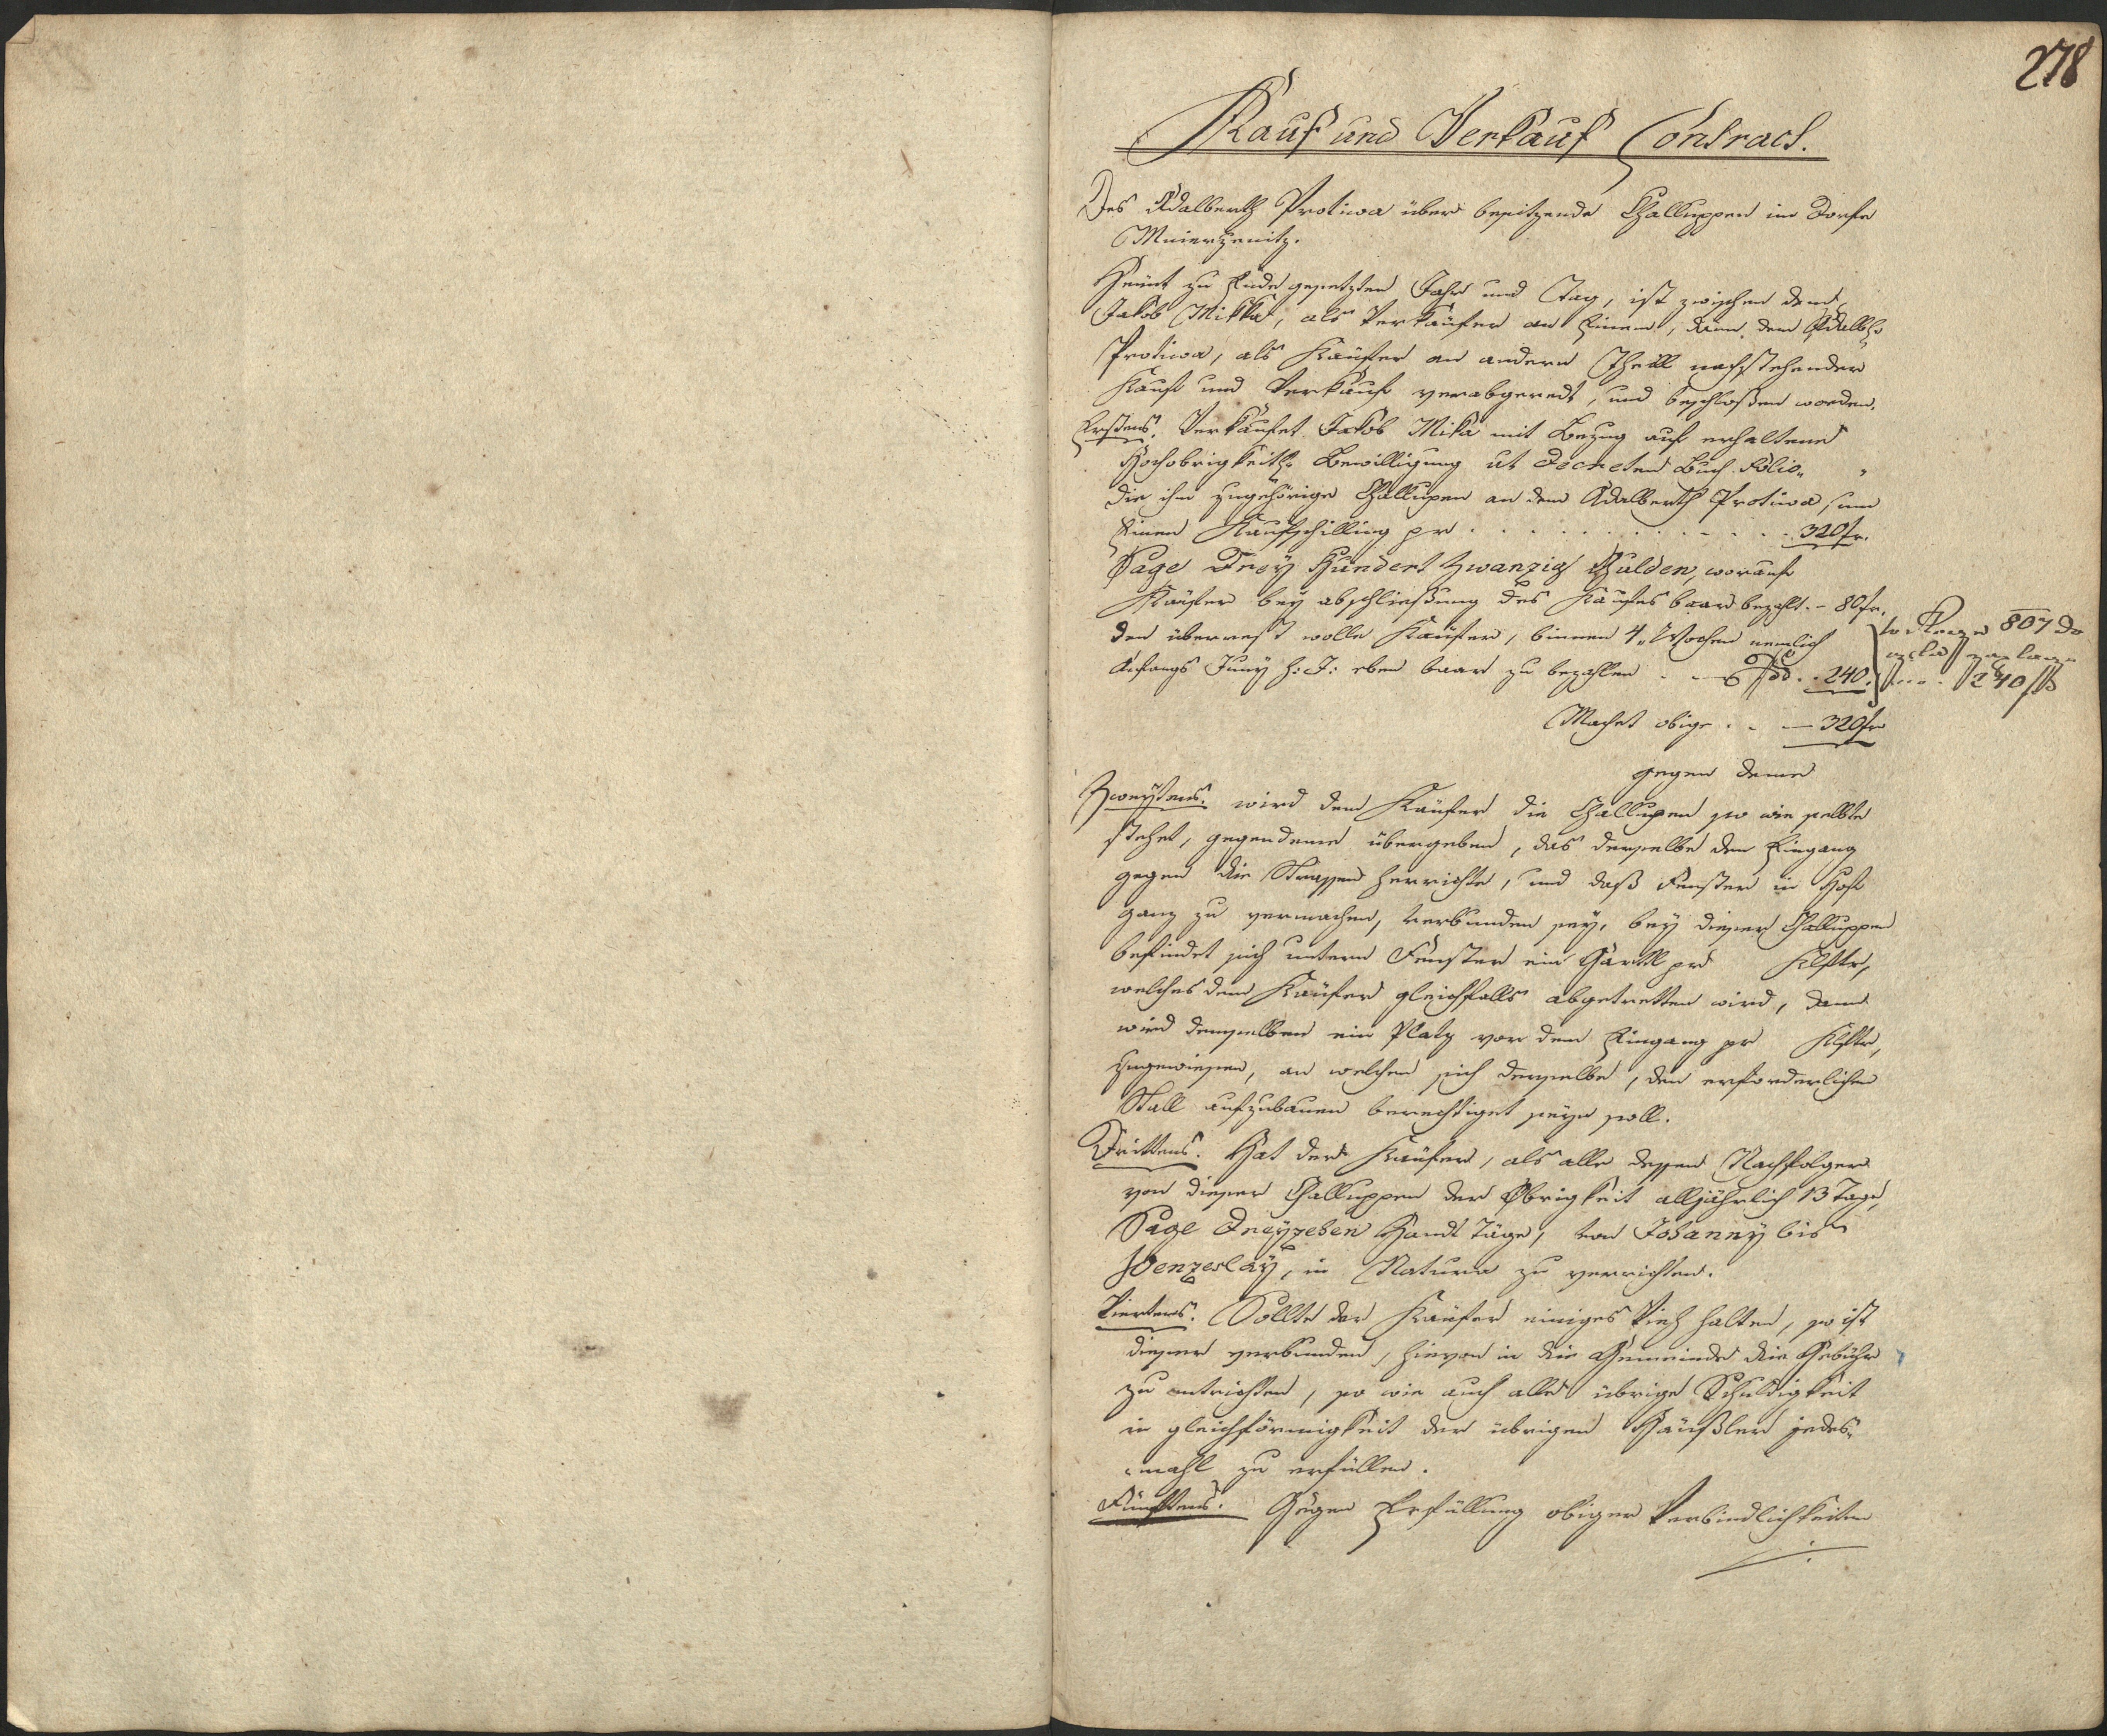 278
Kauf und Verkauf Contract.
Des Adalberth Protiwa über besitzende Challuppen im Dorfe
Mnierzenitz.
Heünt zu Ende gesetzten Jahr und Tag, ist zwischen dem
Jakob Mikka, als Verkäufer an Einem, dann dem Adalbh:
Protiwa, als Käufer an andern Theill nachstehender
Kauf und Verkauf verabgeredt, und beschloßen worden.
Erstens. Verkaufet Jakob Mika mit Bezug auf erhaltene
Hochobrigkeitl: Bewilligung ut Decreten Buch Folio„ „
die ihm zugehörige Challupen an dem Adalberth Protiwa, um
Einen Kaufschilling pr . . . . . . . . . . . . 320 fr.
Sage Drey Hundert Zwanzig Gulden, worauf
Käufer bey abschließung des Kaufes baar bezahlt. – 80 fr.
den überrest wolle Käufer, binnen 4„ Wochen nemlich
Anfangs Juny h: J: eben baar zu bezahlen . . 240.
807
240
Machet obige . . — 320 fr
gegen deme
Zweytens. wird dem Käufer die Challupen so wie selbte
stehet, gegendeme übergeben, das derselbe den Eingang
gegen die Strassen herrichte, und daß Fenster in Hof
ganz zu vermachen, verbunden sey, bey dieser Challuppen
befindet sich untern Fenster ein Gärtll pr Klftr,
welches dem Käufer gleichfalls abgetretten wird, dann
wird demselben ein Platz vor dem Eingang pr Klftr,
zugewiesen, an welchen sich derselbe, den erforderlichen
Stall aufzubauen berechtiget seyn soll.
Drittens. Hat der Käufer, als alle dessen Nachfolger
von dieser Challuppen der Obrigkeit alljährlich 13 Tage,
Sage Dreyzehen Handt Täge, von Johanny bis
Wenzeslay, in Natura zu verrichten.
Viertens. Sollte der Käufer einiges Vieh halten, so ist
dieser verbunden, hievon in die Gemeinde die Gebühr
zu entrichten, so wie auch alle übrige Schuldigkeit
in gleichförmigkeit der übrigen Häußler jedes„
„mahl zu erfüllen.
Fünftens. Gegen Erfüllung obiger Verbindlichkeiten